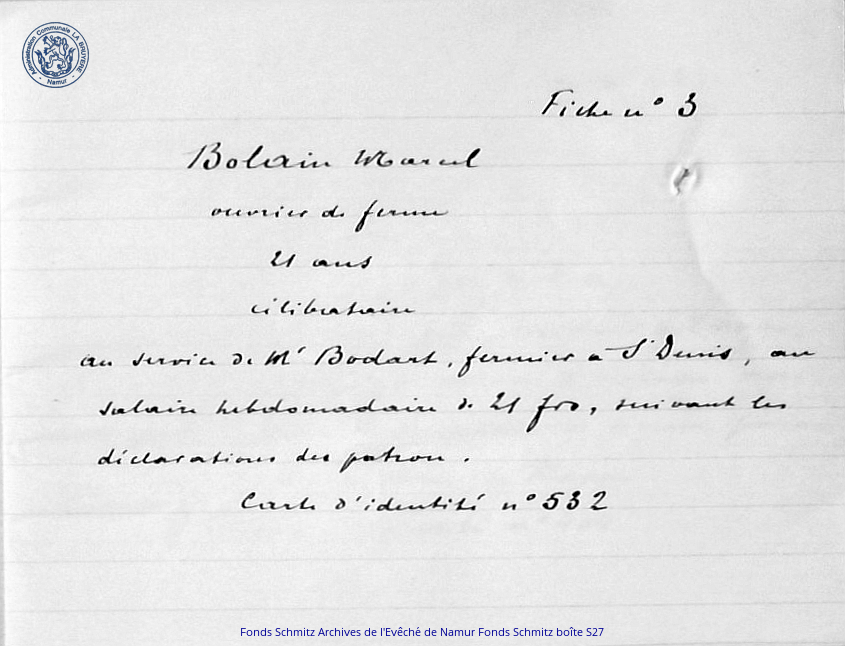 Administration Communale LA BRUYERE
- Namur -
Fiche n° 3
Bolain Marcel
ouvrier de ferme
21 ans
célibataire
au service de Mr Bodart, fermier à St Denis, au
salaire hebdomadaire de 21 frs, suivant les
déclarations du patron.
Carte d'identité n° 532
Fonds Schmitz Archives de l'Evêché de Namur Fonds Schmitz boîte S27